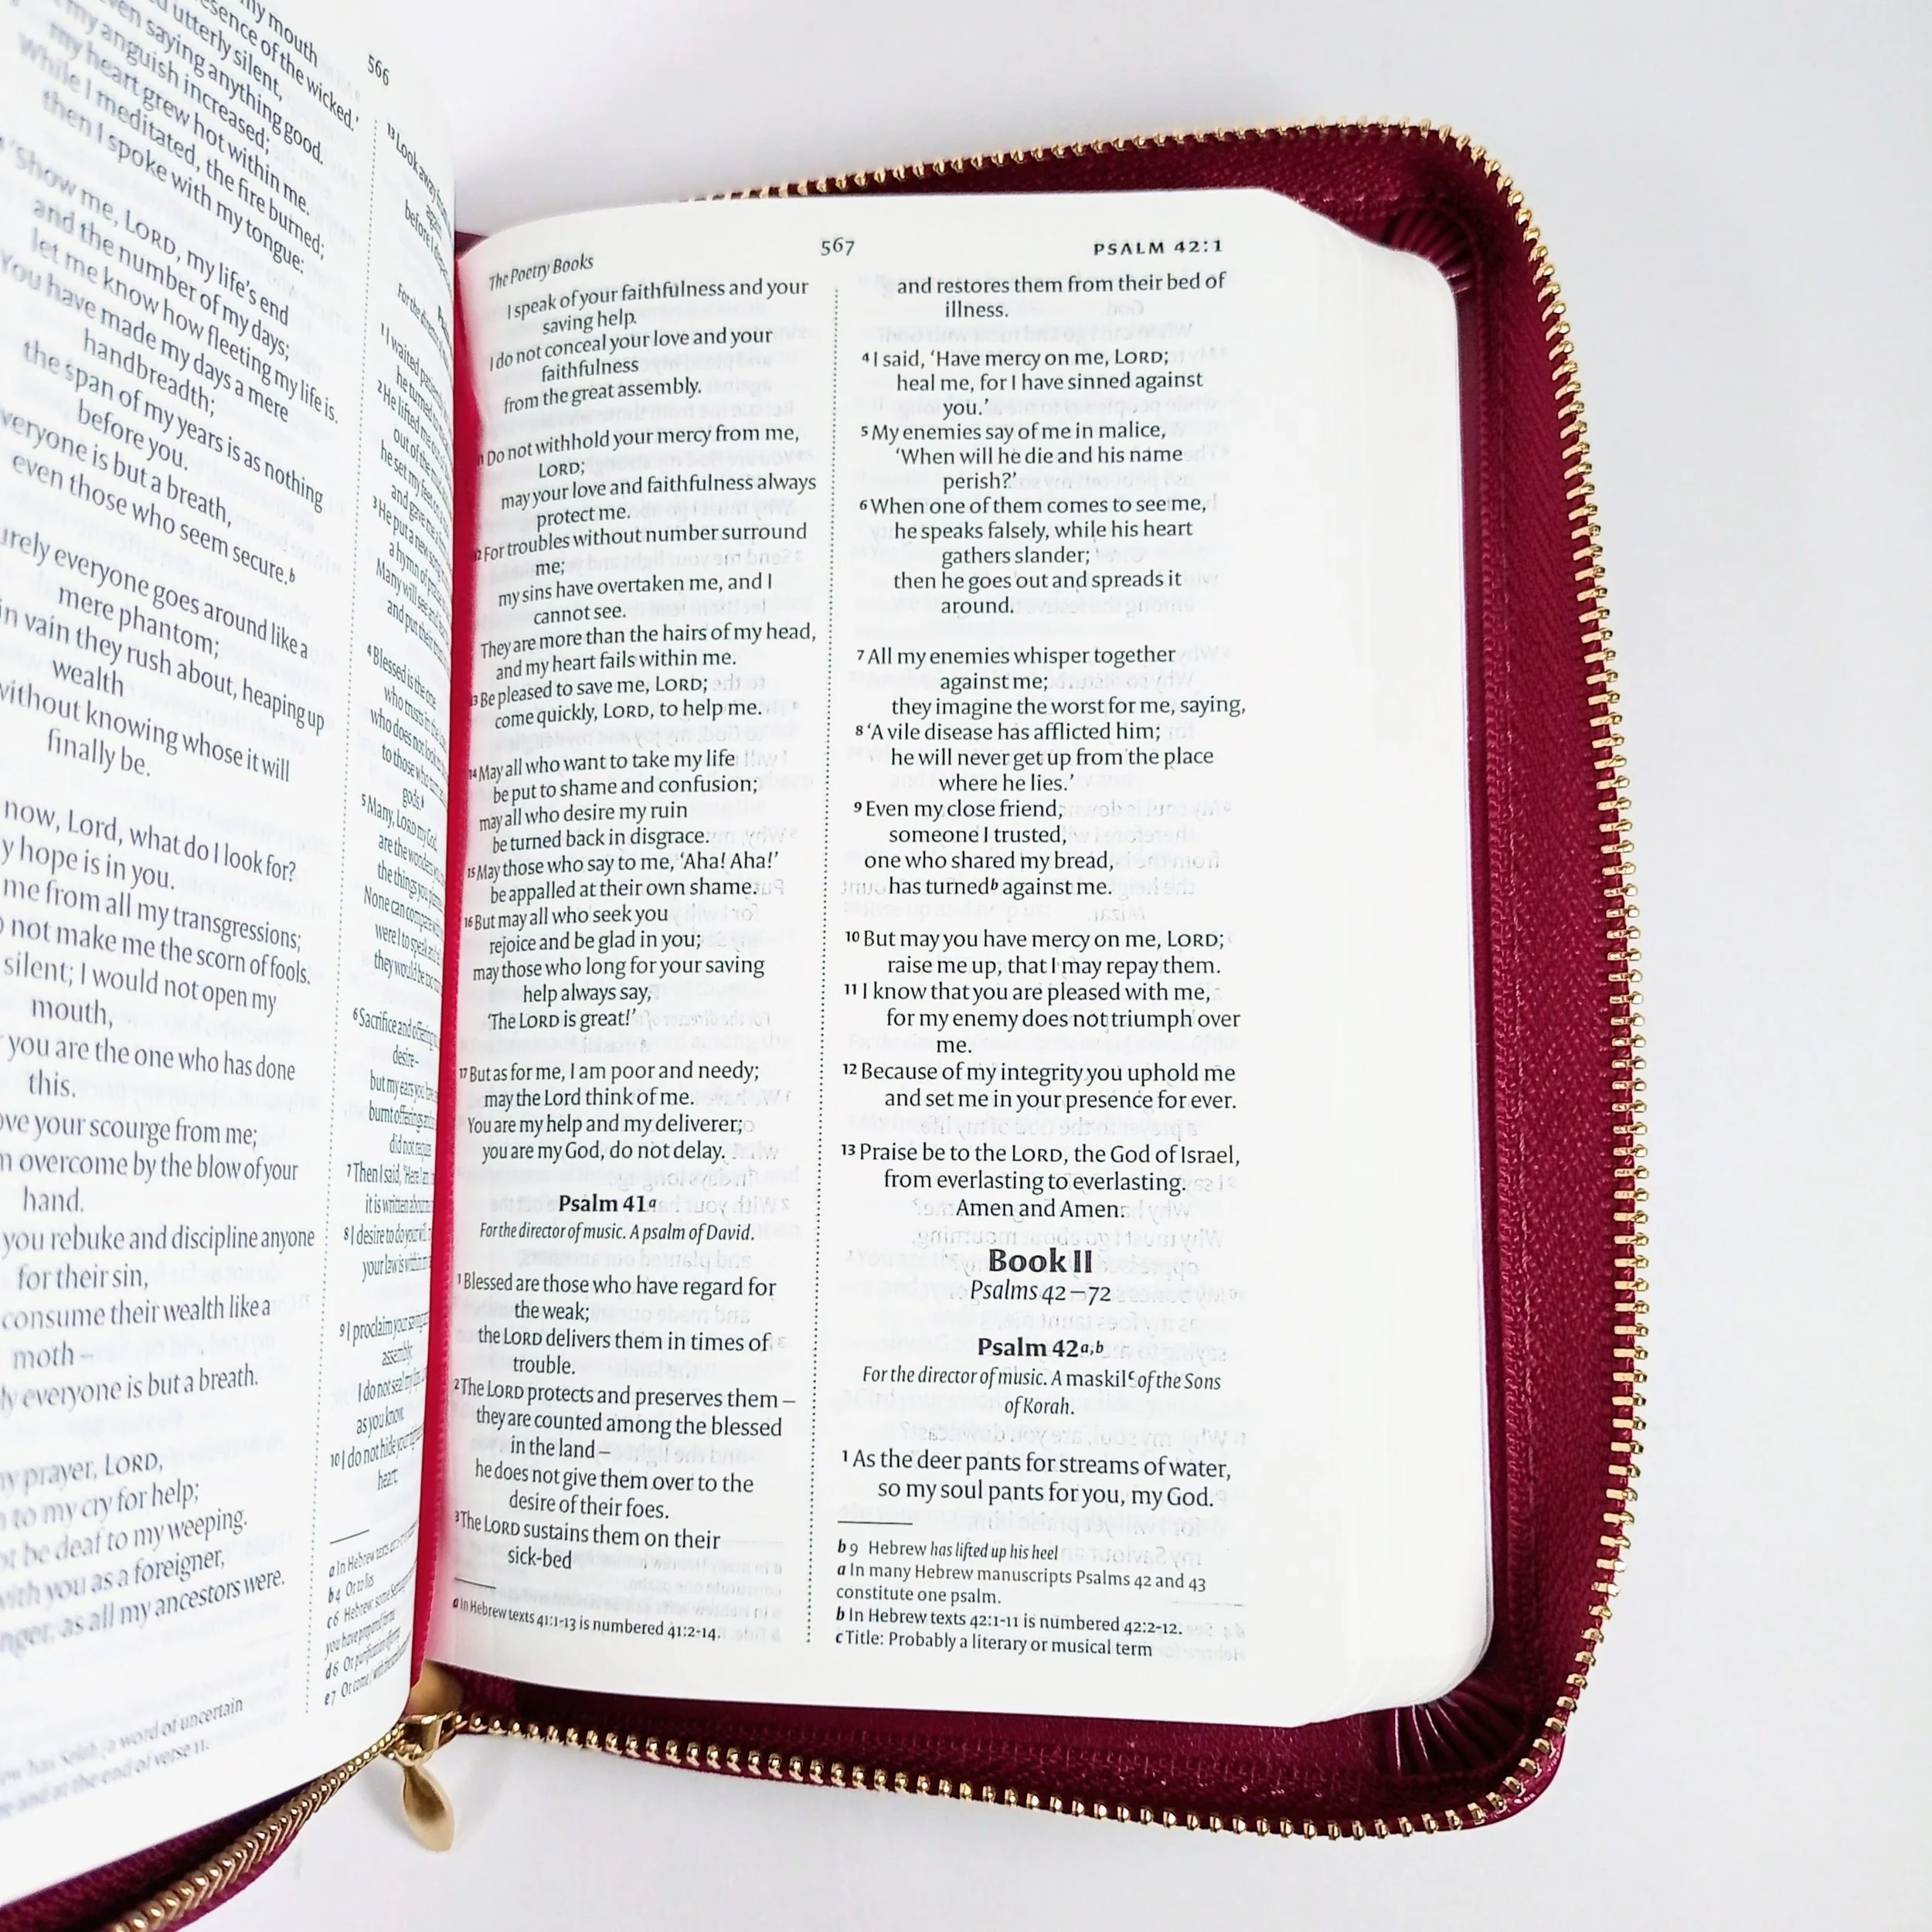 my mouth
esence of the wicked.'
utterly silent,
en saying anything good.
my anguish increased;
my heart grew hot within me.
While I meditated, the fire burned;
then I spoke with my tongue:
'Show me, LORD, my life's end
and the number of my days;
let me know how fleeting my life is.
You have made my days a mere
handbreadth;
the span of my years is as nothing
before you.
veryone is but a breath,
even those who seem secure.b
urely everyone goes around like a
mere phantom;
in vain they rush about, heaping up
wealth
without knowing whose it will
finally be.
now, Lord, what do I look for?
y hope is in you.
me from all my transgressions;
not make me the scorn of fools.
silent; I would not open my
mouth,
you are the one who has done
this.
ove your scourge from me;
m overcome by the blow of your
hand.
you rebuke and discipline anyone
for their sin,
consume their wealth like a
moth –
ly everyone is but a breath.
y prayer, LORD,
to my cry for help;
ot be deaf to my weeping.
with you as a foreigner,
nger, as all my ancestors were.
has Selah (a word of uncertain
and at the end of verse 11.
566
13 Look away
again
before I
For the director
1 I waited
he turned
2 He lifted me
out of the
he set my feet
and gave me
3 He put a new song
a hymn of
Many will see
and put their
4 Blessed is the one
who trusts in
who does not look
to those who
gods
5 Many, LORD my God,
are the wonders
the things you
None can compare
were I to speak
they would be too
6 Sacrifice and offering
desire –
but my ears you
burnt offerings
did not require
7 Then I said, 'Here I am
it is written about
8 I desire to do your will
your law is within
9 I proclaim your
assembly;
I do not seal my lips
as you know.
10 I do not hide your
heart;
a In Hebrew texts
b 4 Or to lies
c 6 Hebrew; some
you have prepared
d 6 Or purification
e 7 Or come
The Poetry Books
567
PSALM 42:1
I speak of your faithfulness and your
saving help.
I do not conceal your love and your
faithfulness
from the great assembly.
11 Do not withhold your mercy from me,
LORD;
may your love and faithfulness always
protect me.
12 For troubles without number surround
me;
my sins have overtaken me, and I
cannot see.
They are more than the hairs of my head,
and my heart fails within me.
13 Be pleased to save me, LORD;
come quickly, LORD, to help me.
14 May all who want to take my life
be put to shame and confusion;
may all who desire my ruin
be turned back in disgrace.
15 May those who say to me, 'Aha! Aha!'
be appalled at their own shame.
16 But may all who seek you
rejoice and be glad in you;
may those who long for your saving
help always say,
'The LORD is great!'
17 But as for me, I am poor and needy;
may the Lord think of me.
You are my help and my deliverer;
you are my God, do not delay.
Psalm 41a
For the director of music. A psalm of David.
1 Blessed are those who have regard for
the weak;
the LORD delivers them in times of
trouble.
2 The LORD protects and preserves them –
they are counted among the blessed
in the land –
he does not give them over to the
desire of their foes.
3 The LORD sustains them on their
sick-bed
a In Hebrew texts 41:1-13 is numbered 41:2-14.
and restores them from their bed of
illness.
4 I said, 'Have mercy on me, LORD;
heal me, for I have sinned against
you.'
5 My enemies say of me in malice,
'When will he die and his name
perish?'
6 When one of them comes to see me,
he speaks falsely, while his heart
gathers slander;
then he goes out and spreads it
around.
7 All my enemies whisper together
against me;
they imagine the worst for me, saying,
8 'A vile disease has afflicted him;
he will never get up from the place
where he lies.'
9 Even my close friend,
someone I trusted,
one who shared my bread,
has turnedb against me.
10 But may you have mercy on me, LORD;
raise me up, that I may repay them.
11 I know that you are pleased with me,
for my enemy does not triumph over
me.
12 Because of my integrity you uphold me
and set me in your presence for ever.
13 Praise be to the LORD, the God of Israel,
from everlasting to everlasting.
Amen and Amen.
Book II
Psalms 42–72
Psalm 42a,b
For the director of music. A maskilc of the Sons
of Korah.
1 As the deer pants for streams of water,
so my soul pants for you, my God.
b 9 Hebrew has lifted up his heel
a In many Hebrew manuscripts Psalms 42 and 43
constitute one psalm.
b In Hebrew texts 42:1-11 is numbered 42:2-12.
c Title: Probably a literary or musical term